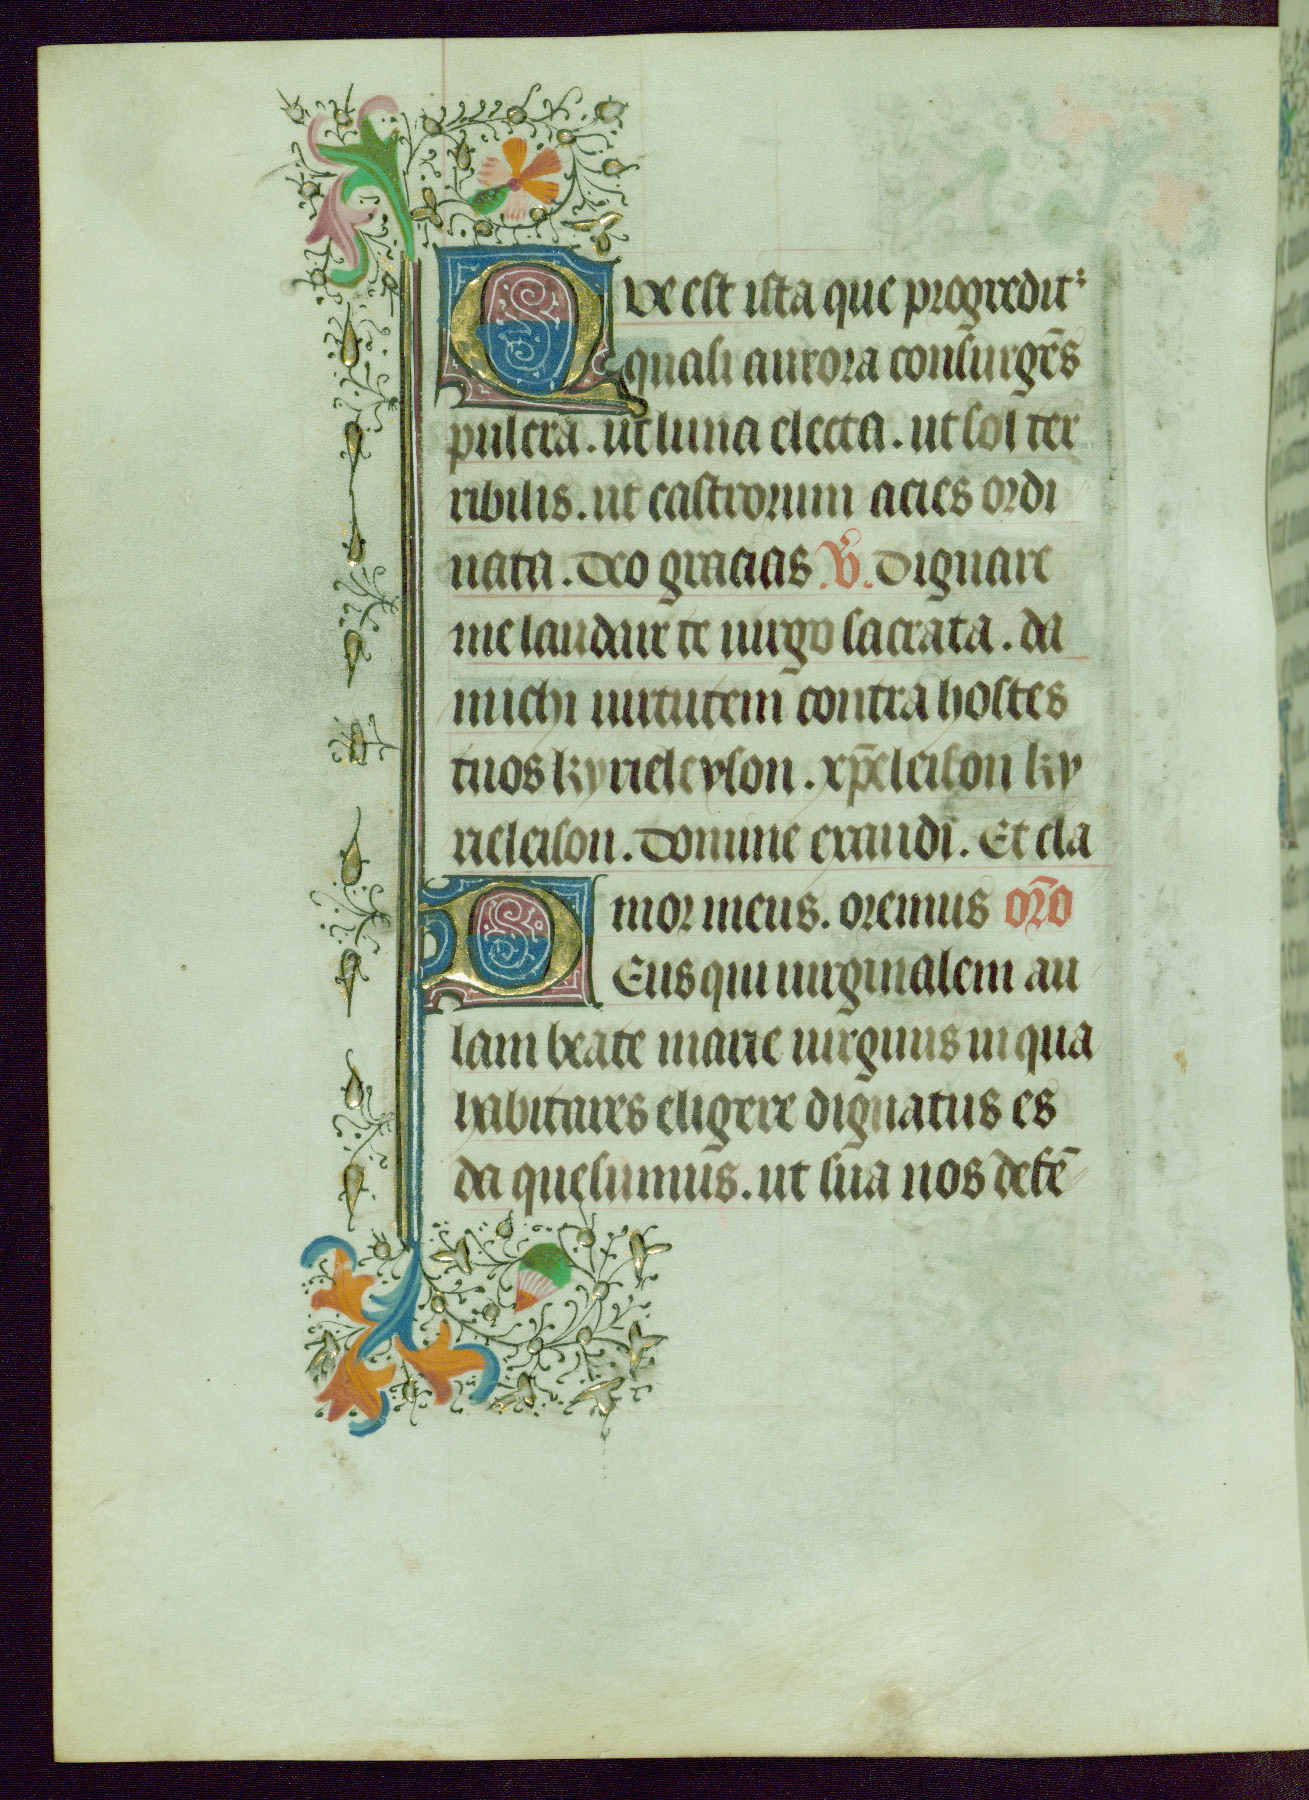 Que est ista que progredit᷑
quasi aurora consurgēs
pulcra. ut luna electa. ut sol ter
ribilis. ut castrorum acies ordi
nata. Deo gracias .V̄. Dignare
me laudare te uirgo sacrata. da
michi uirtutem contra hostes
tuos kyrieleyson. xp̄eleison ky
rieleison. Domine exaudi. Et cla
mor meus. oremus or̄o
Deus qui uirginalem au
lam beate marie uirginis in qua
habitares eligere dignatus es
da quesumus. ut sua nos defē